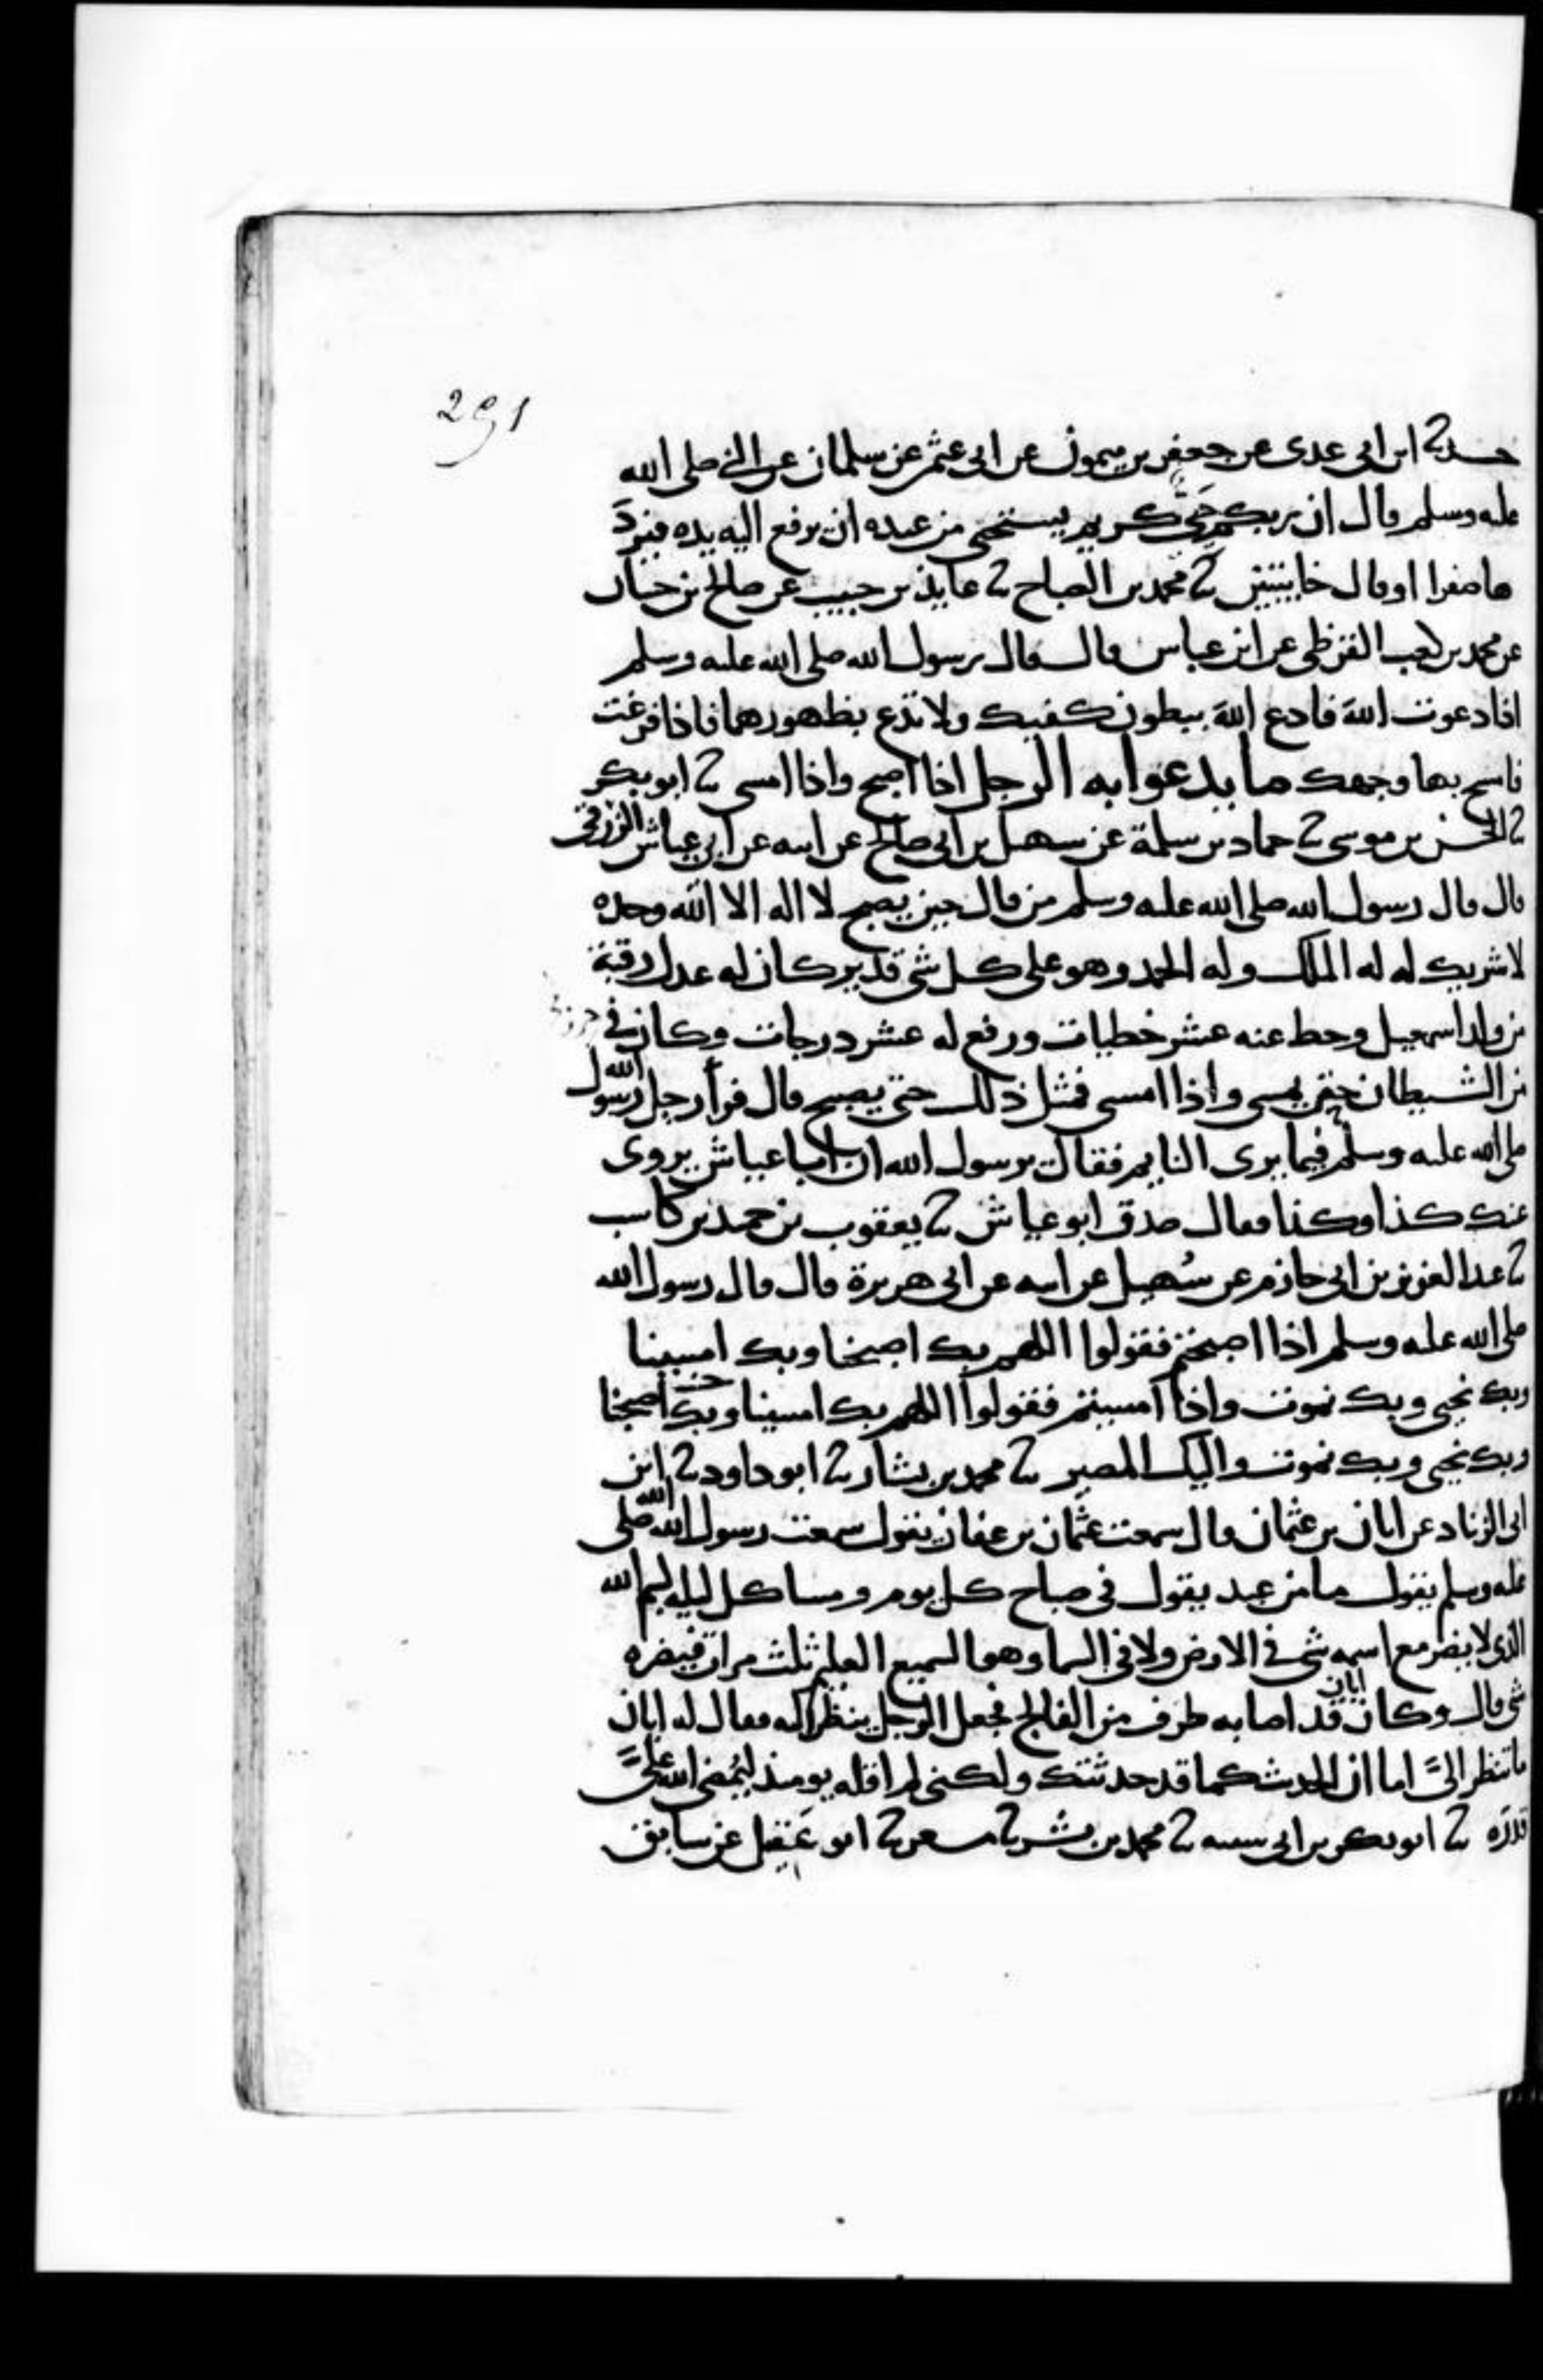 291
ثنا ابن ابي عدى عن جعفر بن ميمون عن ابى عثمن عن سلمان عن النبى صلى الله
عليه وسلم قال ان ربكم حَيِىٌّ كريم يستحيى من عبده ان يرفع اليه يده فيردَّ
هما صفرا او قال خايبتين ثنا محمد بن الصباح ثنا عايذ بن حبيب عن صالح بن حسان
عن محمد بن كعب القرظى عن ابن عباس قال قال رسول الله صلى الله عليه وسلم
اذا دعوت الله فادع الله ببطون كفيك ولا تدع بظهورهما فاذا فرغت
فامسح بهما وجهك ما يدعوا به الرجل اذا اصبح واذا امسى ثنا ابو بكر
ثنا الحسن بن موسى ثنا حماد بن سلمة عن سهيل بن ابى صالح عن ابيه عن ابى عياش الزرقى
قال قال رسول الله صلى الله عليه وسلم من قال حين يصبح لا اله الا الله وحده
لا شريك له له الملك وله الحمد وهو على كل شى قدير كان له عدل رقبة
من ولد اسمعيل وحط عنه عشر خطيات ورفع له عشر درجات وكان فى حرز
من الشيطان حتى يمسى واذا امسى فمثل ذلك حتى يصبح قال فرأى رجل رسول الله
صلى الله عليه وسلم فيما يرى النايم فقال يرسول الله ان ابا عياش يروى
عنك كذا وكذا فقال صدق ابو عياش ثنا يعقوب بن حميد بن كاسب
ثنا عبد العزيز بن ابى حازم عن سُهيل عن ابيه عن ابى هريرة قال قال رسول الله
صلى الله عليه وسلم اذا اصبحتم فقولوا اللهم بك اصبحنا وبك امسينا
وبك نحيى وبك نموت واذا امسيتم فقولوا اللهم بك امسينا وبك اصبحنا
وبك نحيى وبك نموت واليك المصير ثنا محمد بن بشار ثنا ابو داود ثنا ابن
ابى الزناد عن ابان بن عثمان قال سمعت عثمان بن عفان يقول سمعت رسول الله صلى الله
عليه وسلم يقول ما من عبد يقول فى صباح كل يوم ومسا كل ليله بسم الله
الذى لا يضر مع اسمه شى فى الارض ولا فى السما وهو السميع العليم ثلث مرات فيضره
شى قال وكان ابان قد اصابه طرف من الفالج فجعل الرجل ينظر اليه فقال له ابان
ما تنظر الىَّ اما ان الحديث كما قد حدثتك ولكنى لم اقله يوميذ ليُمضى الله علىَّ
قدَره ثنا ابو بكر بن ابى شيبه ثنا محمد بن بشر ثنا مسعر ثنا ابو عَقيل عن سابق